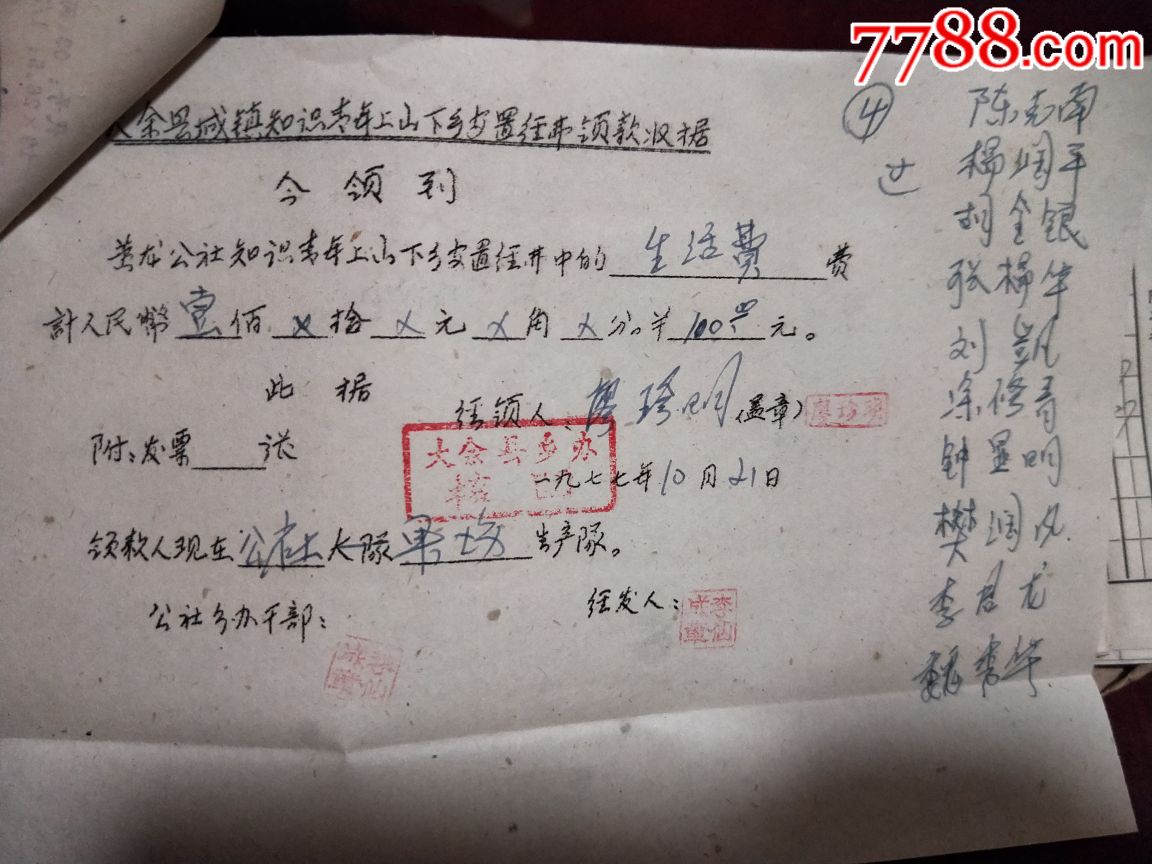 7788.com
大余县城镇知识青年上山下乡安置经费领款收据
今领到
黄龙公社知识青年上山下乡安置经费中的 生活费 费
計人民幣 壹佰 ×拾 × 元 × 角 × 分。半 100.00 元。
此据
经领人: 廖珍明 (盖章) 廖珍明
附:发票 张
大余县乡办
一九七七年10月21日
领款人现在 公社 大队 果场 生产队。
公社乡办干部:
经发人:
李仙
李仙
④
陈克南
杨润平
胡金银
张杨华
刘凯
涂修青
钟显明
樊润凤
李昌龙
魏秀华